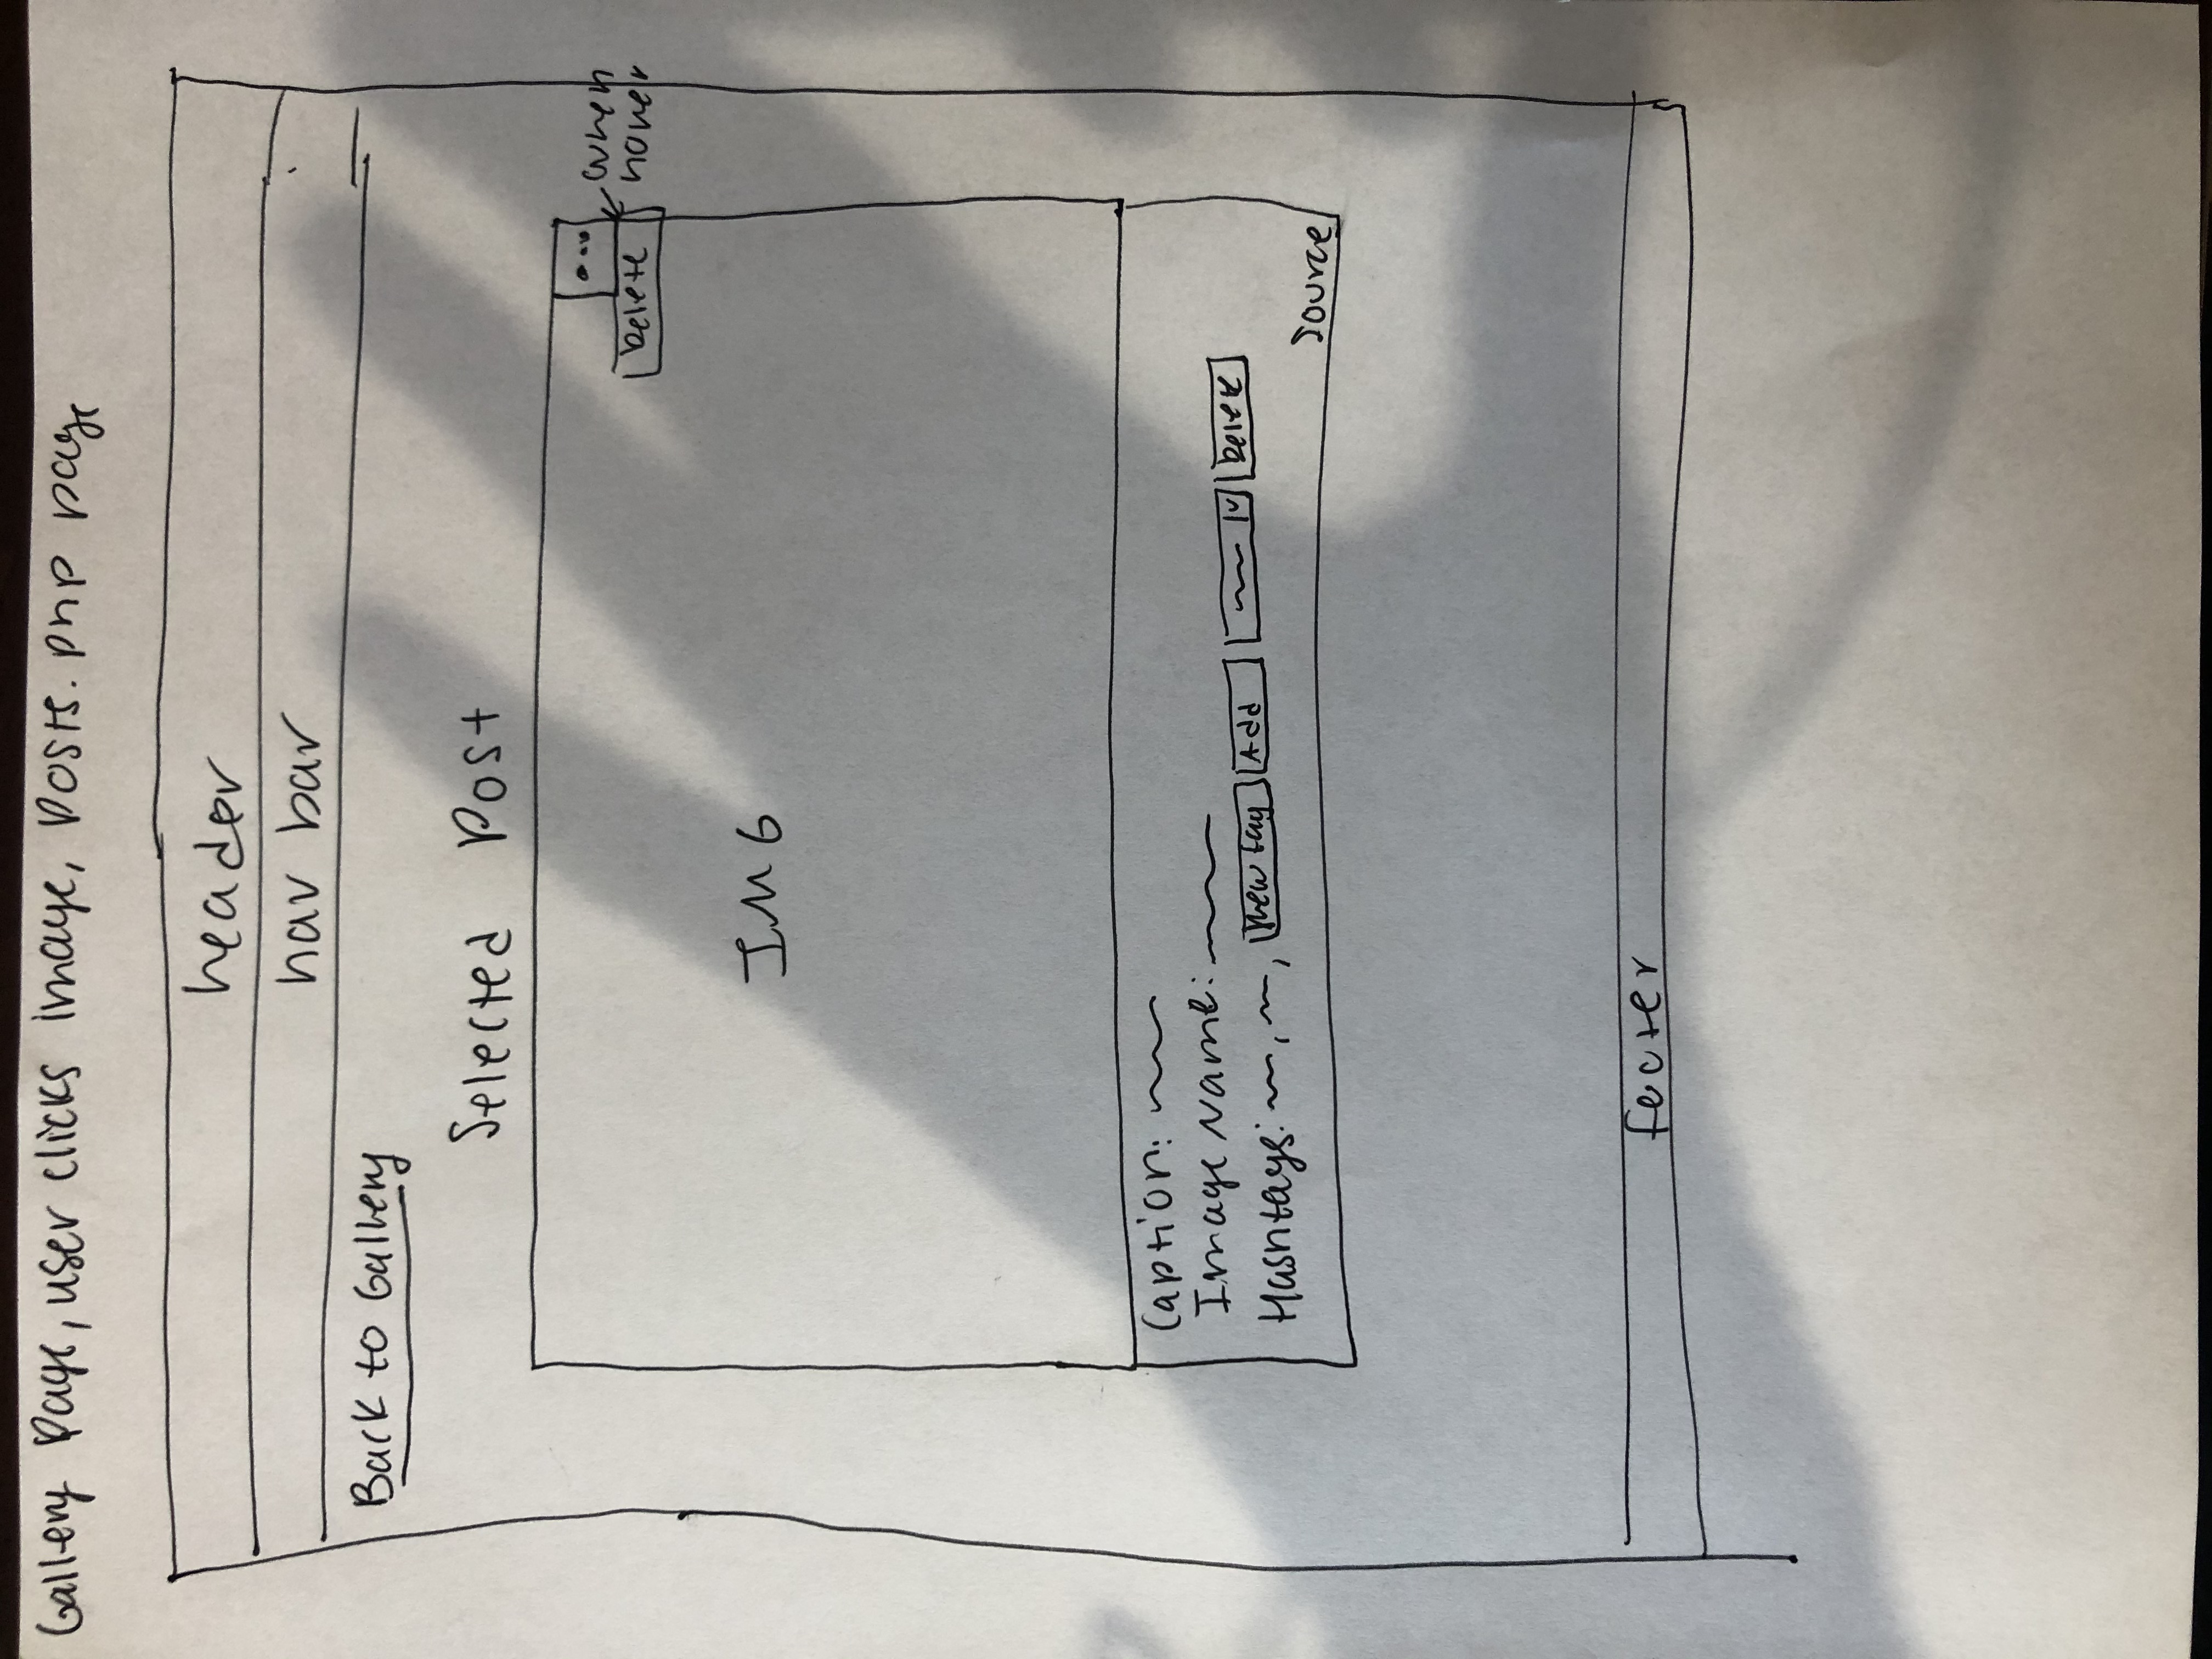 Gallery Page, user clicks image, posts.php page
header
nav bar
Back to Gallery
Selected Post
...
Delete
when
hover
IMG
Caption:
Image Name:
Hashtags: , , New tag Add Delete
Source
footer